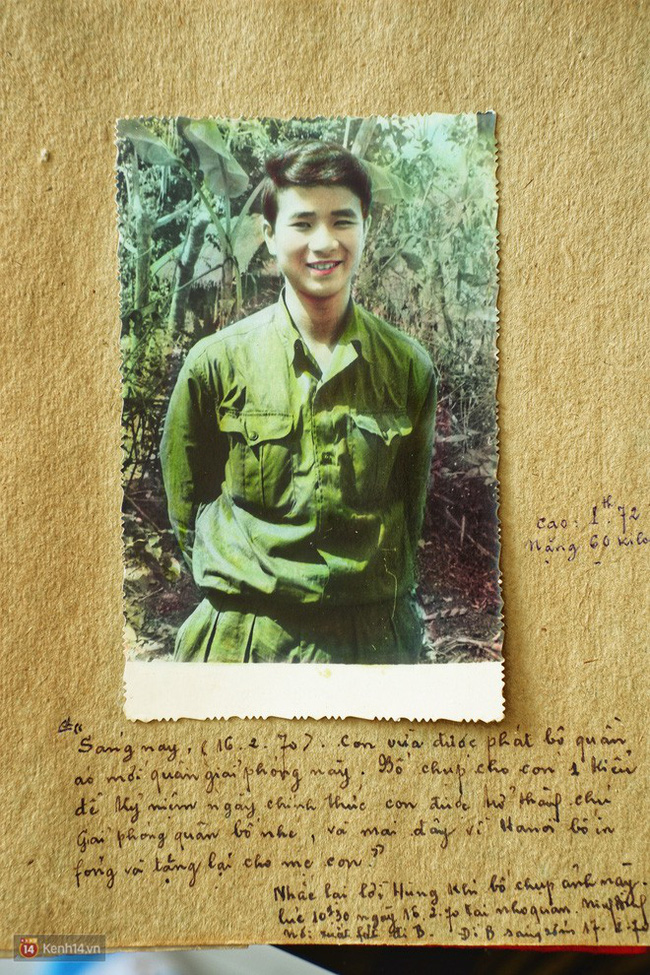 cao: 1th 72
nặng 60 kilo
"Sáng nay, (16.2.70). Con vừa được phát bộ quần
áo mới quân giải phóng này. Bố chụp cho con 1 kiểu
để kỷ niệm ngày chính thức con được trở thành chú
Giải phóng quân bố nhé, và mai đây về Hanoi bố in
fóng và tặng lại cho mẹ con"
Nhắc lại lời Hùng khi bố chụp ảnh này.
lúc 10h30 ngày 16.2.70 tại nho quan. Ninh
Nơi xuất fát đi B. Đi B sáng sớm 17.2.70
14 Kenh14.vn